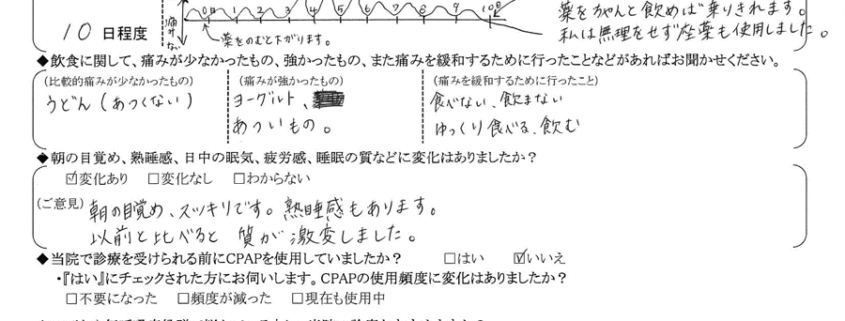 薬をちゃんと飲めば乗りきれます。
私は無理をせず座薬も使用しました。
10 日程度
痛みない
0日 1 2 3 4 5 6 7 8 9 10日
薬をのむと下がります。
◆飲食に関して、痛みが少なかったもの、強かったもの、また痛みを緩和するために行ったことなどがあればお聞かせください。
(比較的痛みが少なかったもの) (痛みが強かったもの) (痛みを緩和するために行ったこと)
うどん(あつくない) ヨーグルト、 食べない、飲まない
あついもの。 ゆっくり食べる、飲む
◆朝の目覚め、熟睡感、日中の眠気、疲労感、睡眠の質などに変化はありましたか?
☑変化あり □変化なし □わからない
(ご意見) 朝の目覚め、スッキリです。熟睡感もあります。
以前と比べると 質が激変しました。
◆当院で診療を受けられる前にCPAPを使用していましたか? □はい ☑いいえ
・『はい』にチェックされた方にお伺いします。CPAPの使用頻度に変化はありましたか?
□不要になった □頻度が減った □現在も使用中